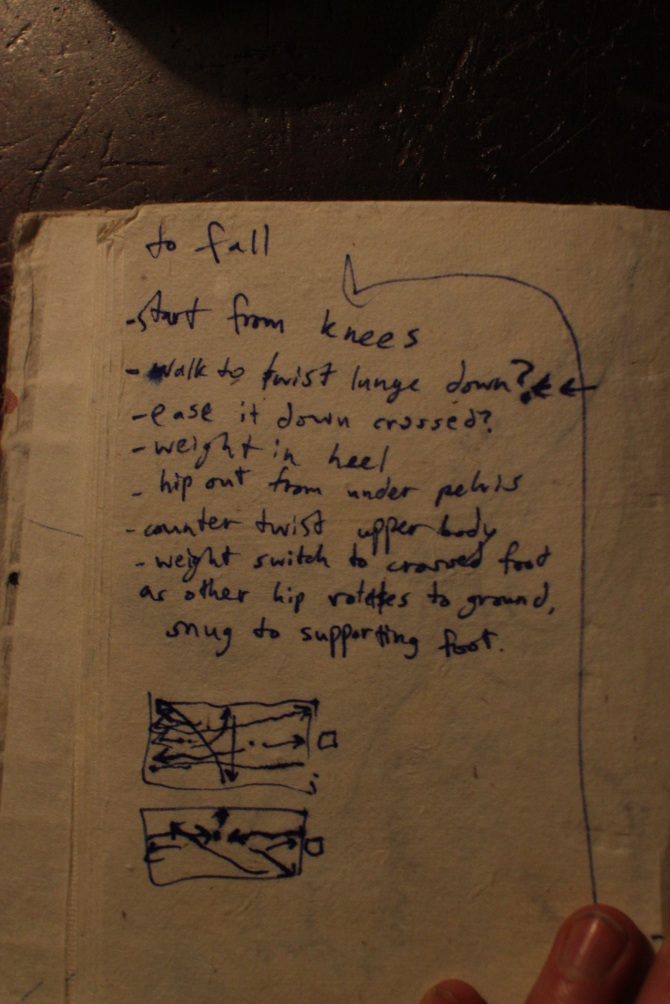 to fall
-start from knees
- walk to twist lunge down?
-ease it down crossed?
-weight in heel
- hip out from under pelvis
-counter twist upper body
-weight switch to crossed foot
as other hip rotates to ground,
snug to supporting foot.